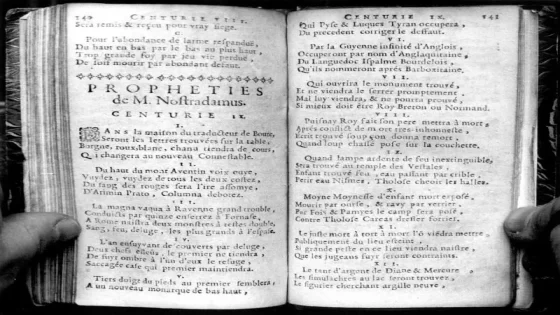 340 CENTURIE VIII.
Sera remis & reçeu pour vray siege.
C
Pour l'abondance de larme respandue,
Du haut en bas par le bas au plus haut,
Trop grande foy par jeu vie perdue,
De soif mourir par abondant defaut.
PROPHETIES
de M. Nostradamus.
CENTURIE IX.
I.
DANS la maison du traducteur de Bourc,
Seront les lettres trouvées sur la table,
Borgne, roux, blanc, chanu tiendra de cours,
Qui changera au nouveau Connestable.
II.
Du haut du mont Aventin voix ouye,
Vuydez, vuydez de tous les deux costez,
Du sang des rouges sera l'ire assomye,
D'Arimin Prato, Columna debotez.
III.
La magna vaqua à Ravenne grand trouble,
Conduicts par quinze enserrez à Fornase,
A Rome naistra deux monstres à testes double,
Sang, feu, deluge, les plus grands à l'espase.
IV.
L'an ensuyvant descouverts par deluge,
Deux chefs esleus, le premier ne tiendra,
De fuyr ombre à l'un d'eux le refuge,
Saccagée case qui premier maintiendra.
V.
Tiers doigt du pieds au premier semblera,
A un nouveau monarque de bas haut,
CENTURIE IX. 341
Qui Pyse & Luques Tyran occupera,
Du precedent corriger le deffaut.
VI.
Par la Guyenne infinité d'Anglois,
Occuperont par nom d'Anglaquitaine,
Du Languedoc Ispalme Bourdelois,
Qu'ils nommeront après Barboxitaine.
VII.
Qui ouvrira le monument trouvé,
Et ne viendra le serrer promptement,
Mal luy viendra, & ne pourra prouvé,
Si mieux doit être Roy Breton ou Normand.
VIII.
Puisnay Roy fait son pere mettra à mort,
Après conflict de mort tres-inhonneste,
Ecrit trouvé soupçon donra remort,
Quand loup chassé pose sur la couchette.
IX.
Quand lampe ardente de feu inextinguible,
Sera trouvé au temple des Vestales,
Enfant trouvé feu, eau passant par crible,
Petit eau Nismes, Tholose cheoir les halles.
X.
Moyne Moynesse d'enfant mort exposé,
Mourir par ourse, & ravy par verrier,
Par Fois & Pamyes le camp sera posé,
Contre Tholose Carcas dresser forier.
XI.
Le juste mort à tort à mort l'ô viédra mettre
Publiquement du lieu esteint,
Si grande peste en ce lieu viendra naistre,
Que les jugeans fuyr seront contraints.
XII.
Le tant d'argent de Diane & Mercure
Les simulachres au lac seront trouvez,
Le figurier cherchant argille neuve,